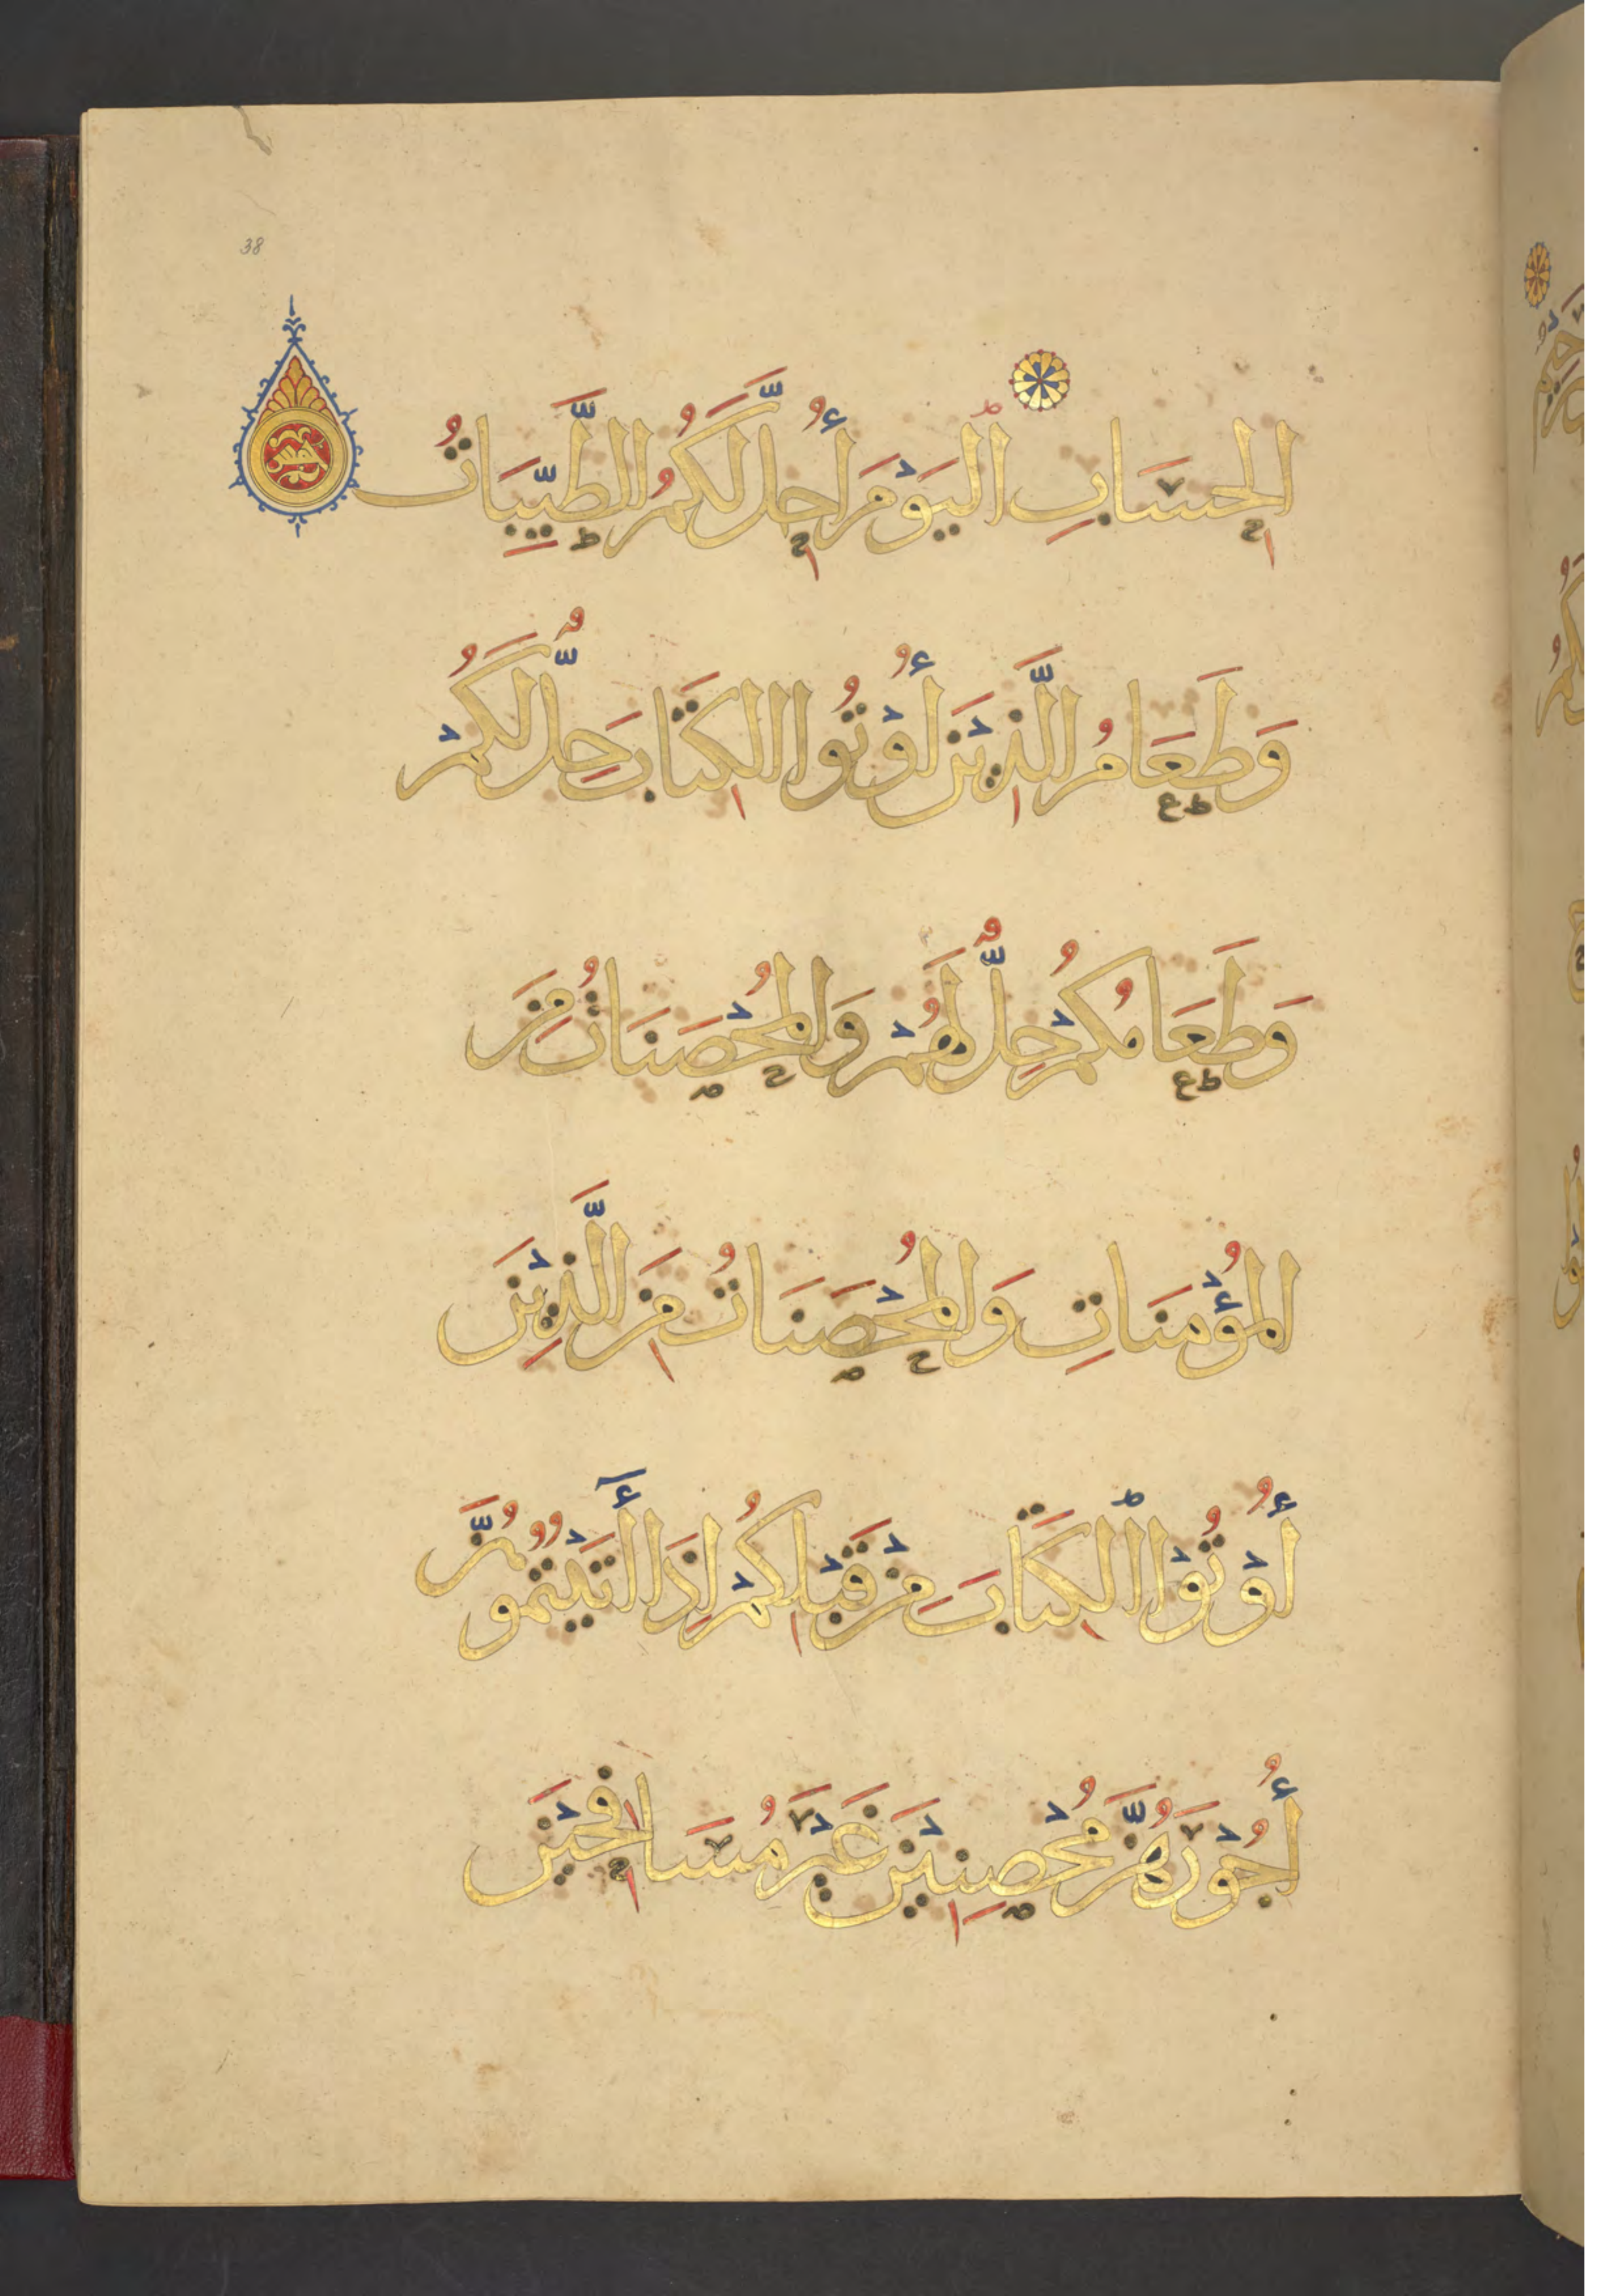 38
الحِسَابِ اليَوْمَ أُحِلَّ لَكُمُ الطَّيِّبَاتُ
وَطَعَامُ الَّذِيْنَ أُوْتُوا الكِتَابَ حِلٌّ لَكُمْ
وَطَعَامُكُمْ حِلٌّ لَهُمْ وَالمُحْصَنَاتُ مِنَ
المُؤْمِنَاتِ وَالمُحْصَنَاتُ مِنَ الَّذِيْنَ
أُوْتُوْا الْكِتَابَ مِنْ قَبْلِكُمْ إِذَا أٰتَيْتُمُوْهُنَّ
أُجُوْرَهُنَّ مُحْصِنِيْنَ غَيْرَ مُسَافِحِيْنَ